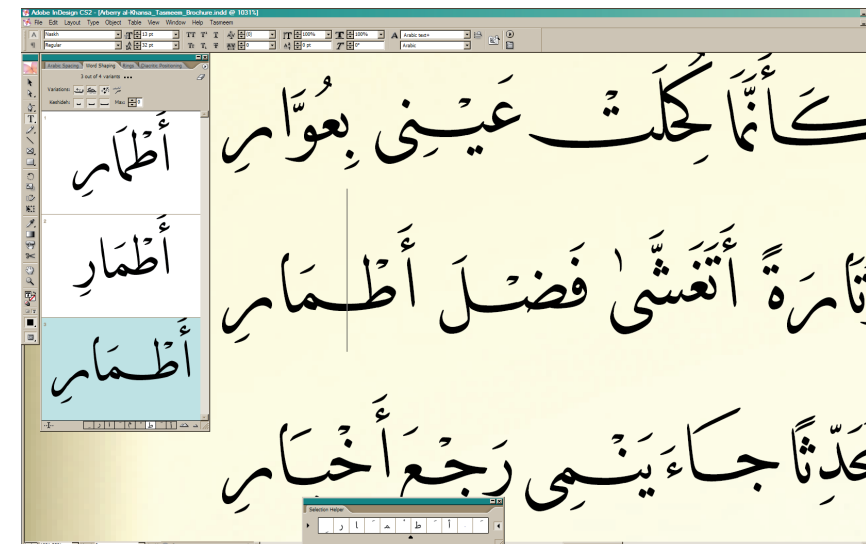 Adobe InDesign CS2 - [Arberry al-Khansa_Tasmeem_Brochure.indd @ 1031%]
File Edit Layout Type Object Table View Window Help Tasmeem
Naskh 13 pt (0) 100% 100% Arabic text+
Regular 32 pt 0 0 pt 0° Arabic
Arabic Spacing Word Shaping Rings Discrete Positioning
3 out of 4 variants
Variations:
Keshideh: Max: 0
1
أَطْمَارِ
2
أَطْمَارِ
3
أَطْمَارِ
كَأَنَّمَا كُحِلَتْ عَيْنِى بِعُوَّارِ
تَارَةً أَتَغَشَّىٰ فَضْلَ أَطْمَارِ
جَاءَ يَنْمِى رَجْعَ أَخْبَارِ
Selection Helper